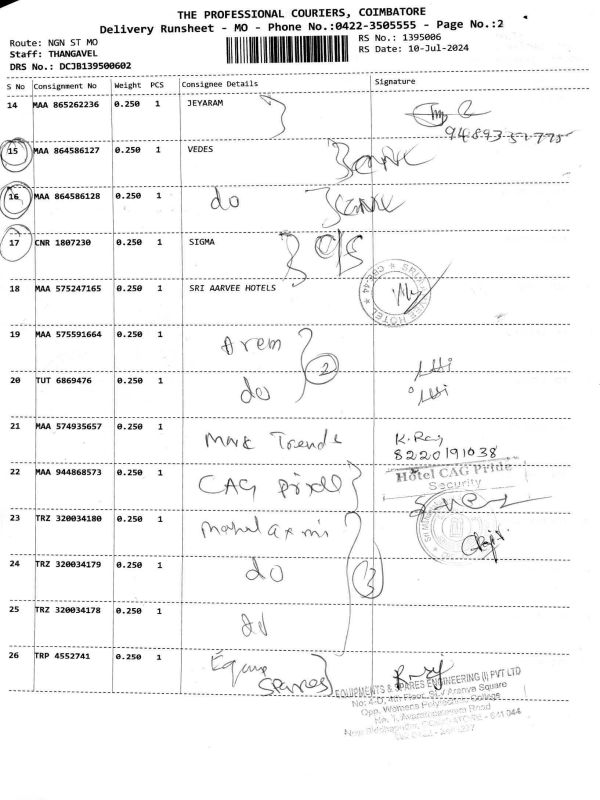 THE PROFESSIONAL COURIERS, COIMBATORE
Delivery Runsheet - MO - Phone No.:0422-3505555 - Page No.:2
Route: NGN ST MO
Staff: THANGAVEL
DRS No.: DCJB139500602
RS No.: 1395006
RS Date: 10-Jul-2024
S No Consignment No Weight PCS Consignee Details Signature
14 MAA 865262236 0.250 1 JEYARAM
15 MAA 864586127 0.250 1 VEDES
16 MAA 864586128 0.250 1 do
17 CNR 1807230 0.250 1 SIGMA O/S
18 MAA 575247165 0.250 1 SRI AARVEE HOTELS
19 MAA 575591664 0.250 1 Arem 2
20 TUT 6869476 0.250 1 do
21 MAA 574935657 0.250 1 Trends K. Raj
8220191038
22 MAA 944868573 0.250 1 CAG Hotel CAG Pride
Security
23 TRZ 320034180 0.250 1
24 TRZ 320034179 0.250 1 do 3
25 TRZ 320034178 0.250 1
26 TRP 4552741 0.250 1 Spares
EQUIPMENTS & SPARES ENGINEERING (I) PVT LTD
No: 4-D, 4th Floor, Aranya Square
Opp. Womens Polytechnic College
No. 1, Road
COIMBATORE - 641 044